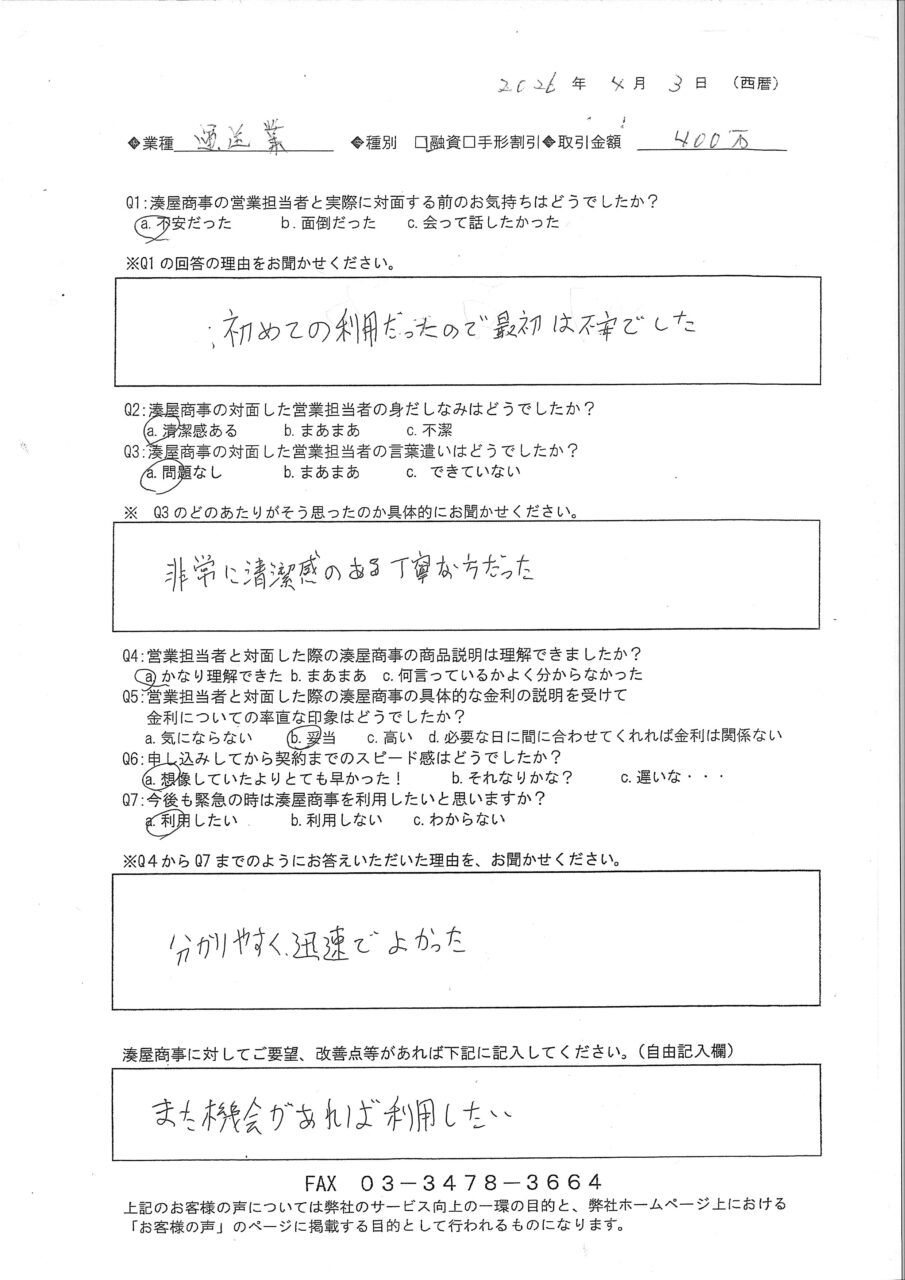 2026年 4月 3日 （西暦）
◆業種 運送業 ◆種別 □融資□手形割引◆取引金額 400万
Q1:湊屋商事の営業担当者と実際に対面する前のお気持ちはどうでしたか？
a.不安だった b.面倒だった c.会って話したかった
※Q1の回答の理由をお聞かせください。
初めての利用だったので最初は不安でした
Q2:湊屋商事の対面した営業担当者の身だしなみはどうでしたか？
a.清潔感ある b.まあまあ c.不潔
Q3:湊屋商事の対面した営業担当者の言葉遣いはどうでしたか？
a.問題なし b.まあまあ c. できていない
※ Q3のどのあたりがそう思ったのか具体的にお聞かせください。
非常に清潔感のある丁寧な方だった
Q4:営業担当者と対面した際の湊屋商事の商品説明は理解できましたか？
a かなり理解できた b.まあまあ c.何言っているかよく分からなかった
Q5:営業担当者と対面した際の湊屋商事の具体的な金利の説明を受けて
金利についての率直な印象はどうでしたか？
a.気にならない b.妥当 c.高い d.必要な日に間に合わせてくれれば金利は関係ない
Q6:申し込みしてから契約までのスピード感はどうでしたか？
a.想像していたよりとても早かった！ b.それなりかな？ c.遅いな・・・
Q7:今後も緊急の時は湊屋商事を利用したいと思いますか？
a.利用したい b.利用しない c.わからない
※Q4からQ7までのようにお答えいただいた理由を、お聞かせください。
分かりやすく、迅速でよかった
湊屋商事に対してご要望、改善点等があれば下記に記入してください。（自由記入欄）
また機会があれば利用したい
FAX 03－3478－3664
上記のお客様の声については弊社のサービス向上の一環の目的と、弊社ホームページ上における
「お客様の声」のページに掲載する目的として行われるものになります。